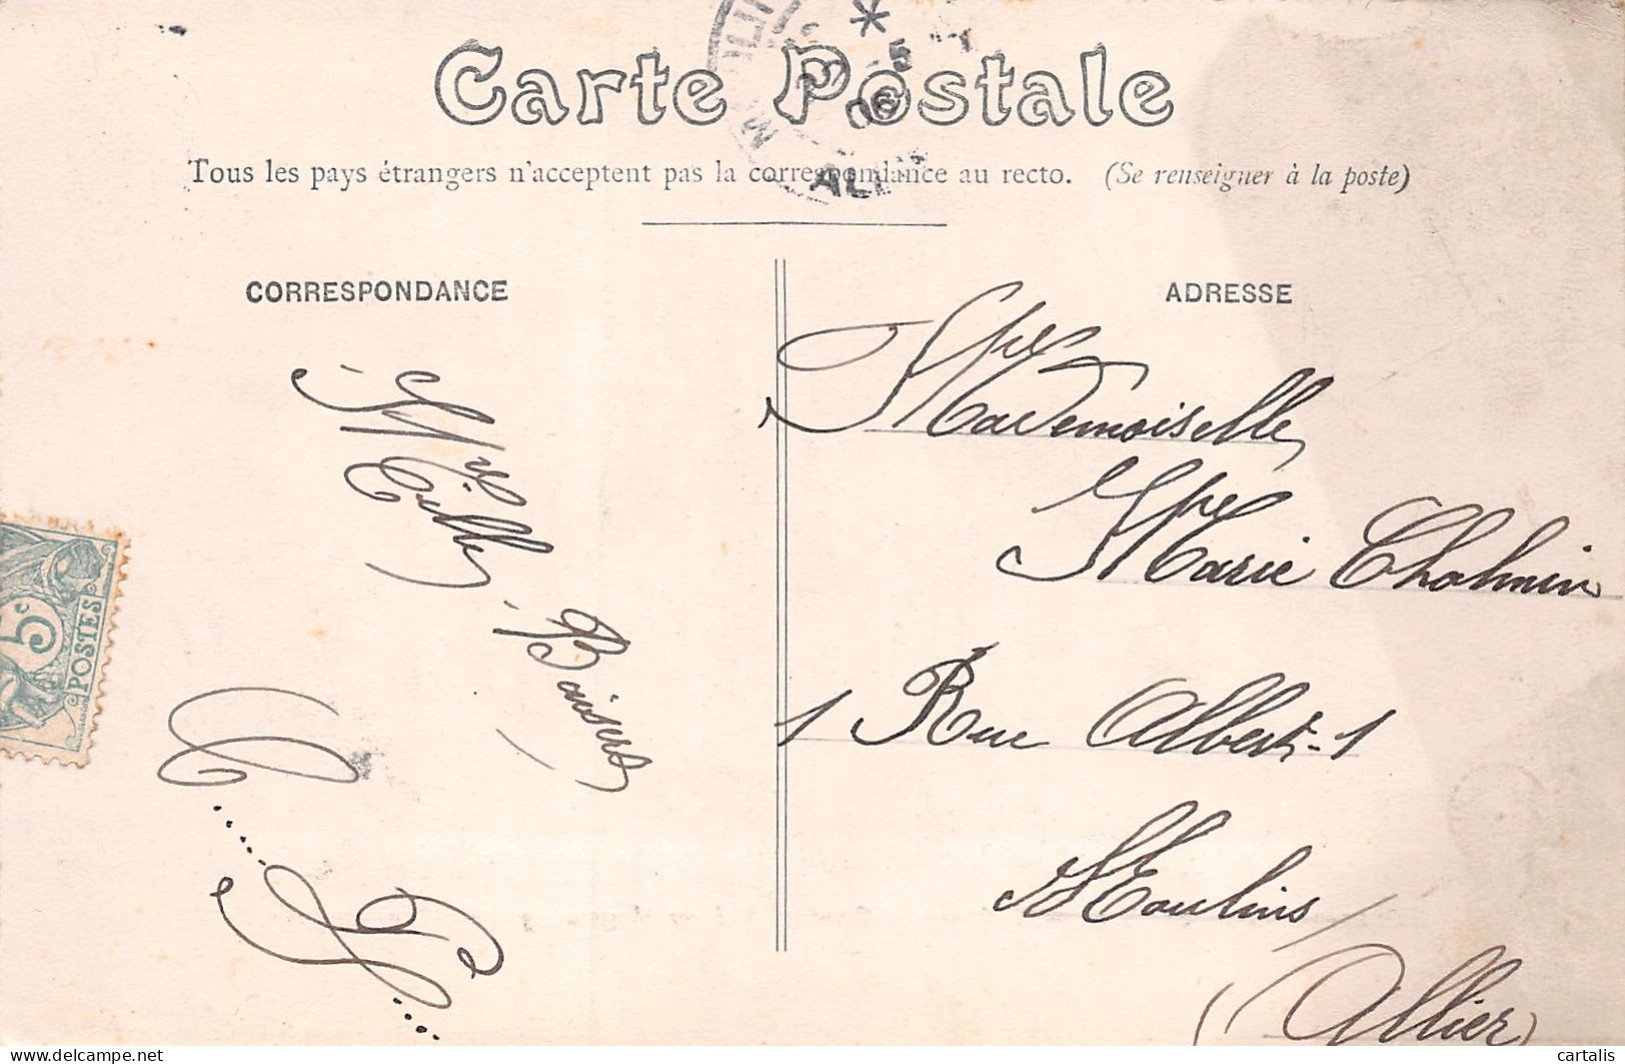 Carte Postale
Tous les pays étrangers n'acceptent pas la correspondance au recto. (Se renseigner à la poste)
CORRESPONDANCE
Mille
Baisers
ADRESSE
Mademoiselle
Marie Chalmin
1 Rue Albert-1
Moulins
(Allier)
5c
POSTES
ALL
cartalis